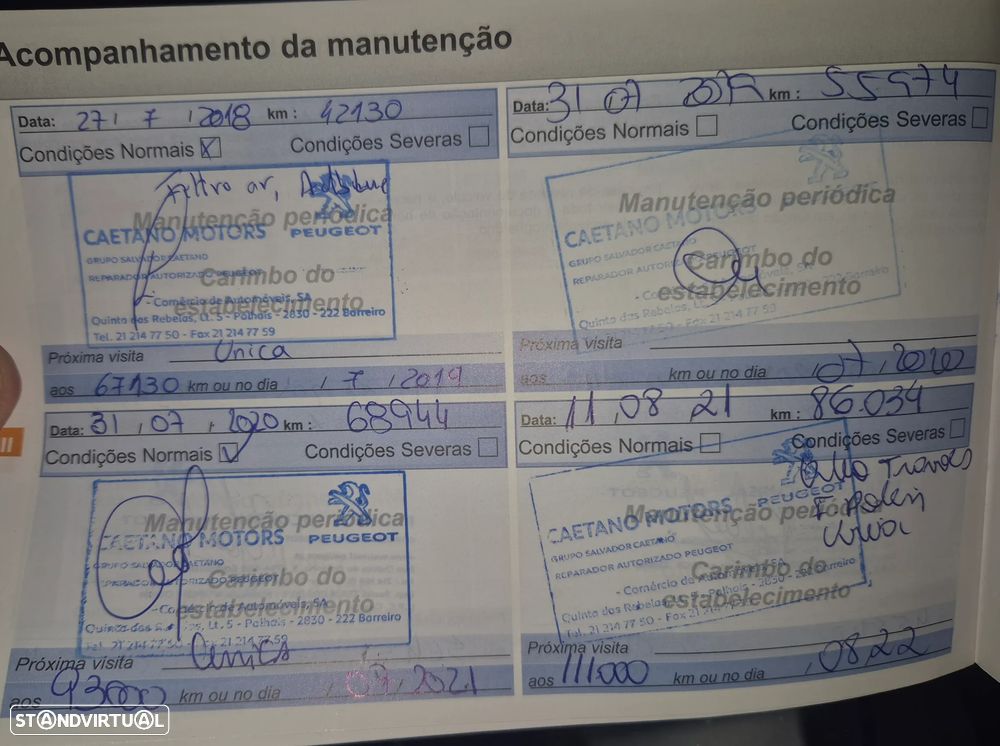 Acompanhamento da manutenção
Data: 27 / 7 / 2018 km : 42130
Condições Normais X Condições Severas
Filtro ar, Adblue
Manutenção periódica
CAETANO MOTORS PEUGEOT
GRUPO SALVADOR CAETANO
REPARADOR AUTORIZADO PEUGEOT
Carimbo do
- Comércio de Automóveis, SA
estabelecimento
Quinta das Rebelas, Lt. 5 - Palhais - 2830 - 222 Barreiro
Tel. 21 214 77 50 - Fax 21 214 77 59
Próxima visita Unica
aos 67130 km ou no dia / 7 / 2019
Data: 31 07 2019 km : 55974
Condições Normais Condições Severas
Manutenção periódica
CAETANO MOTORS
GRUPO SALVADOR CAETANO
REPARADOR AUTORIZADO
Carimbo do
estabelecimento
Quinta das Rebelas, Barreiro
Tel. 21 214 77 50 - Fax 21 214 77 59
Próxima visita
aos km ou no dia , 07 , 2020
Data: 31 , 07 , 2020 km : 68944
Condições Normais Condições Severas
Manutenção periódica
CAETANO MOTORS PEUGEOT
GRUPO SALVADOR CAETANO
REPARADOR AUTORIZADO PEUGEOT
Carimbo do
- Comércio de Automóveis, SA
estabelecimento
Quinta das Lt. 5 - Palhais - 2830 - 222 Barreiro
Tel. 21 214 77 59
Próxima visita Unica
aos 93000 km ou no dia , 07 , 2021
Data: 11 , 08 21 km : 86.034
Condições Normais Condições Severas
Oleo Travões
Manutenção periódica
CAETANO MOTORS PEUGEOT
GRUPO SALVADOR CAETANO
REPARADOR AUTORIZADO PEUGEOT
Carimbo do
- Comércio de Automóveis, SA
estabelecimento
Quinta das Rebelas, Lt. 5 - Palhais - 2830 - 222 Barreiro
Tel. 21 214 77 50 - Fax 21 214 77 59
Próxima visita
aos 111.000 km ou no dia , 08 22
STANDVIRTUAL